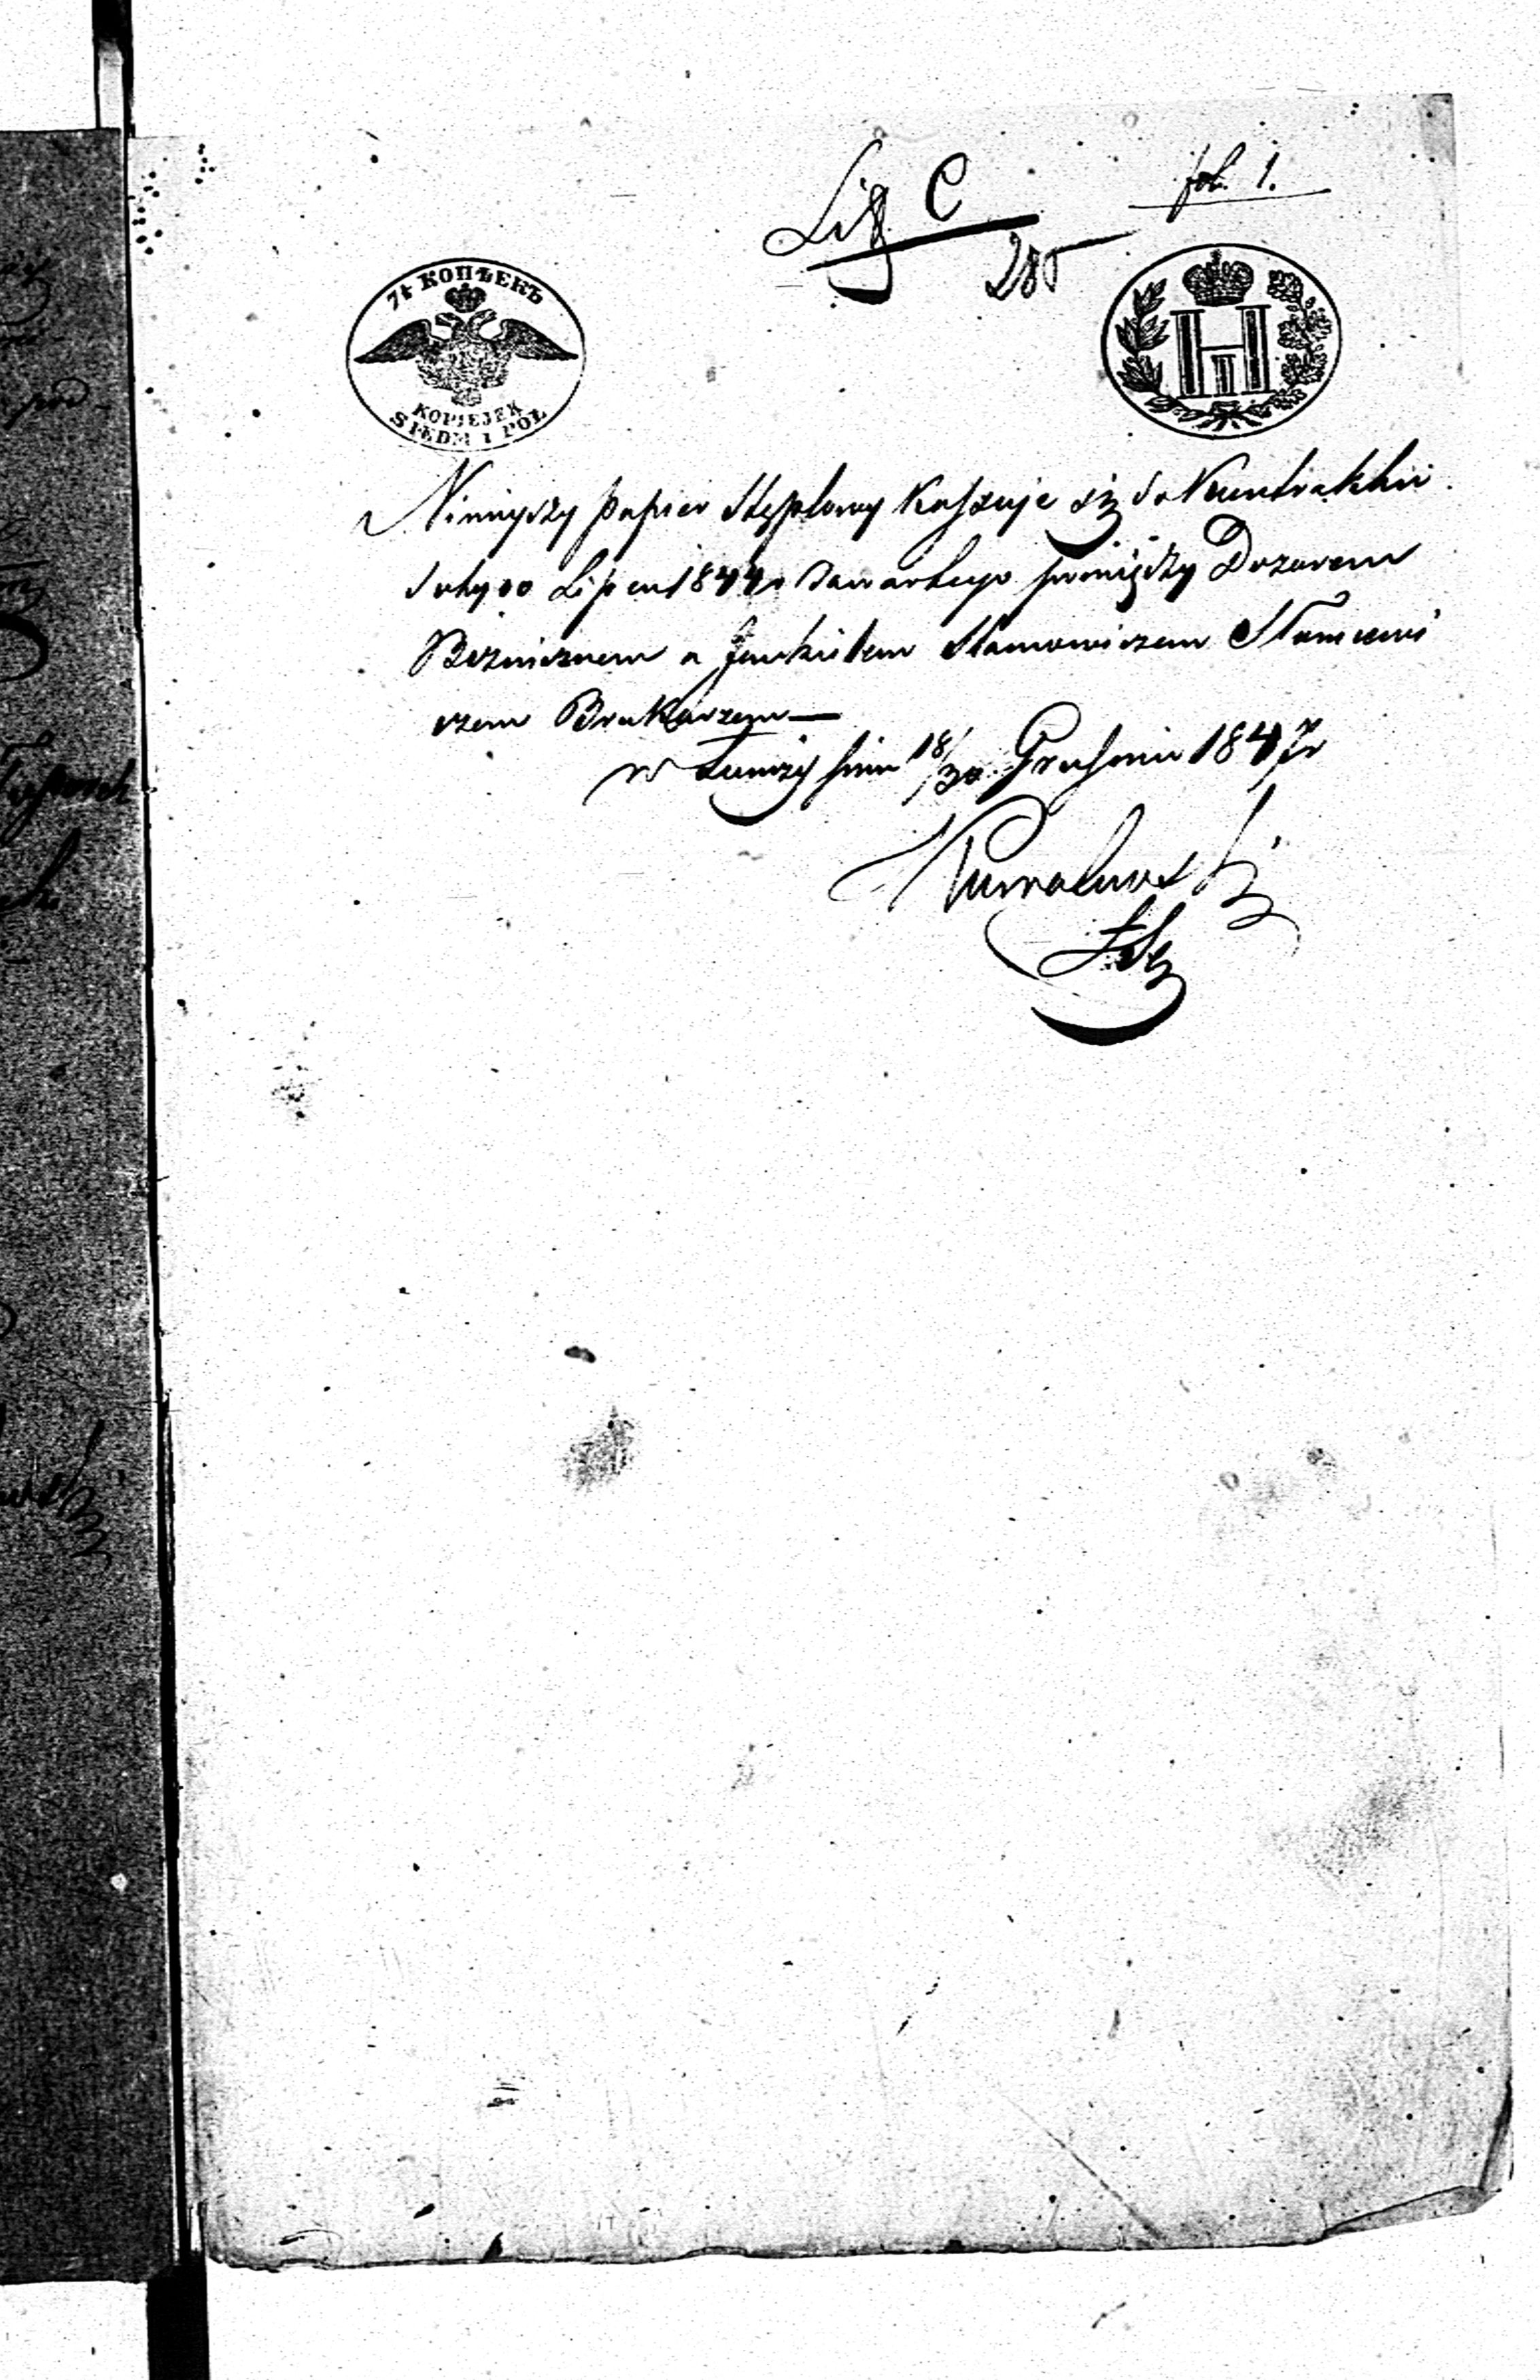 Lit C
fol. 1.
285
7½ КОПѢЕКЪ
KOPIEJEK
SIEDM I POŁ
Niniejszy papier Stęplowy Kassuje się do Kontraktu
Lipca 1844 r zawartego pomiędzy Dozorem
Bożnicznem a Jankielem Stanowiczem
czem Brukarzem —
w Łomży dnia 18/30 Grudnia 1847 r